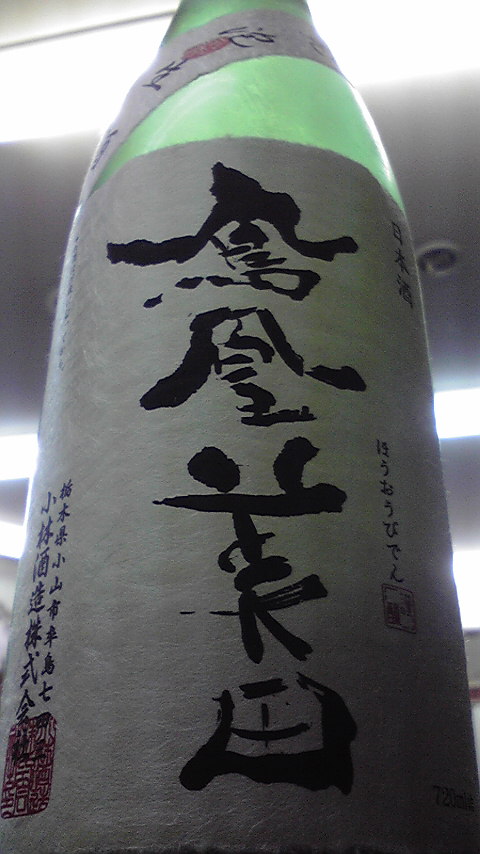 日本酒
鳳凰美田
ほうおうびでん
栃木県小山市卒島七
小林酒造株式会社
720ml